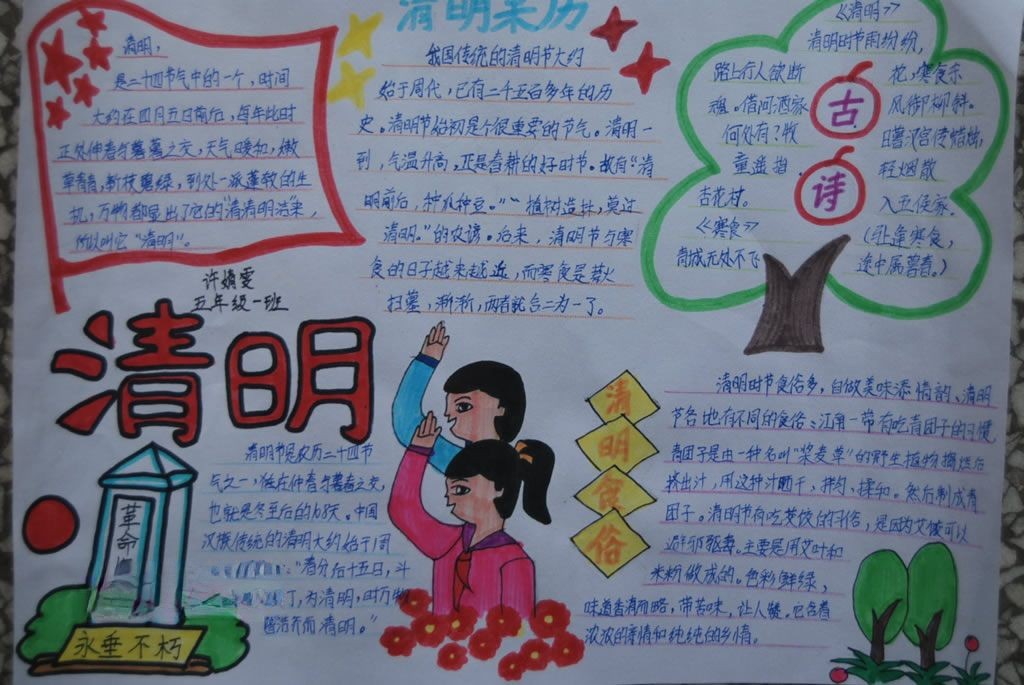 清明,
是二十四节气中的一个,时间
大约在四月五日前后,每年此时
正处仲春与暮春之交,天气暖和,嫩
草青青,新枝碧绿,到处一派蓬勃的生
机,万物都显出了它的"清清明洁来,
所以叫它"清明"。
许娟雯
五年级一班
清明来历
我国传统的清明节大约
始于周代,已有二千五百多年的历
史。清明节始初是个很重要的节气。清明一
到,气温升高,正是春耕的好时节。故有"清
明前后,种瓜种豆。""植树造林,莫过
清明。"的农谚。后来,清明节与寒
食的日子越来越近,而寒食是禁火
扫墓,渐渐,两者就合二为一了。
《清明》
清明时节雨纷纷,
路上行人欲断
魂。借问酒家
何处有?牧
童遥指
杏花村。
《寒食》
城无处不飞
古
诗
花,寒食东
风御柳斜。
日暮汉宫传蜡烛,
轻烟散
入五侯家。
逢寒食,
途中属暮春。)
清明
清明节是农历二十四节
气之一,在仲春与暮春之交,
也就是冬至后的108天。中国
汉族传统的清明大约始于周
"春分后十五日,斗
丁,为清明,时万物
洁而清明。"
革命
永垂不朽
清
明
食
俗
清明时节食俗多,自做美味添情韵、清明
节各地有不同的食俗:江南一带有吃青团子的习惯
青团子是由一种名叫"浆麦草"的野生植物捣烂后
挤出汁,用这种汁晒干,拌匀、揉和。然后制成青
团子。清明节有吃艾饺的习俗,是因为艾饺可以
避邪驱毒。主要是用艾叶和
米粉做成的。色彩鲜绿,
味道香清而略,带苦味,让人馋。它含着
浓浓的亲情和纯纯的乡情。